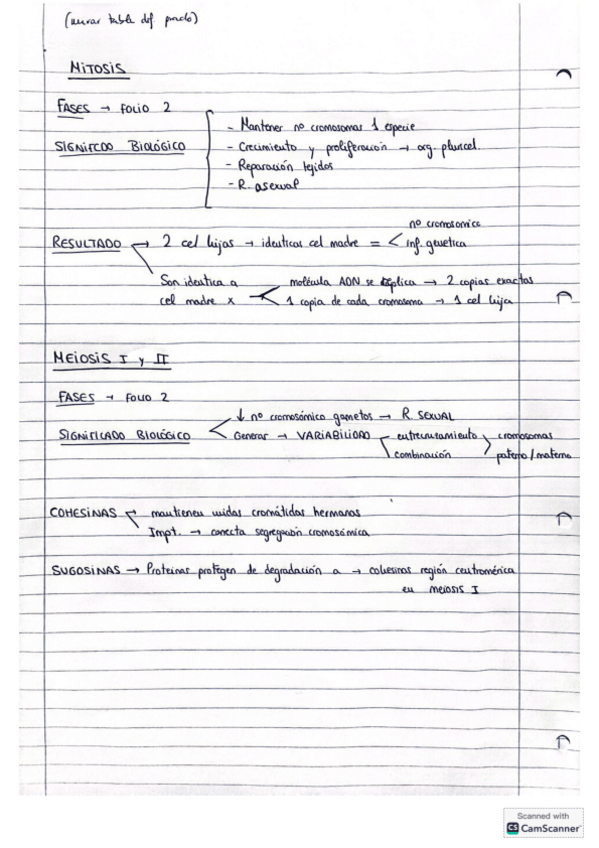 (mirar tabla dif. prado)
MITOSIS
FASES → FOLIO 2
SIGNIFCDO BIOLÓGICO
- Mantener nº cromosomas 1 especie
- Crecimiento y proliferación → org. pluricel.
- Reparación tejidos
- R. asexual
RESULTADO → 2 cel hijas → identicas cel madre = < nº cromosomico
inf. genetica
Son identica a cel madre x < molécula ADN se replica → 2 copias exactas
1 copia de cada cromosoma → 1 cel hija
MEIOSIS I y II
FASES → FOLIO 2
SIGNIFICADO BIOLÓGICO < ↓ nº cromosómico gametos → R. SEXUAL
Generar → VARIABILIDAD entrecruzamiento
combinación
cromosomas
paterno / materno
COHESINAS mantienen unidas cromátidas hermanas
Impt. → correcta segregación cromosómica
SUGOSINAS → Proteinas protegen de degradación a → cohesinas región centromérica
en meiosis I
Scanned with
CS CamScanner